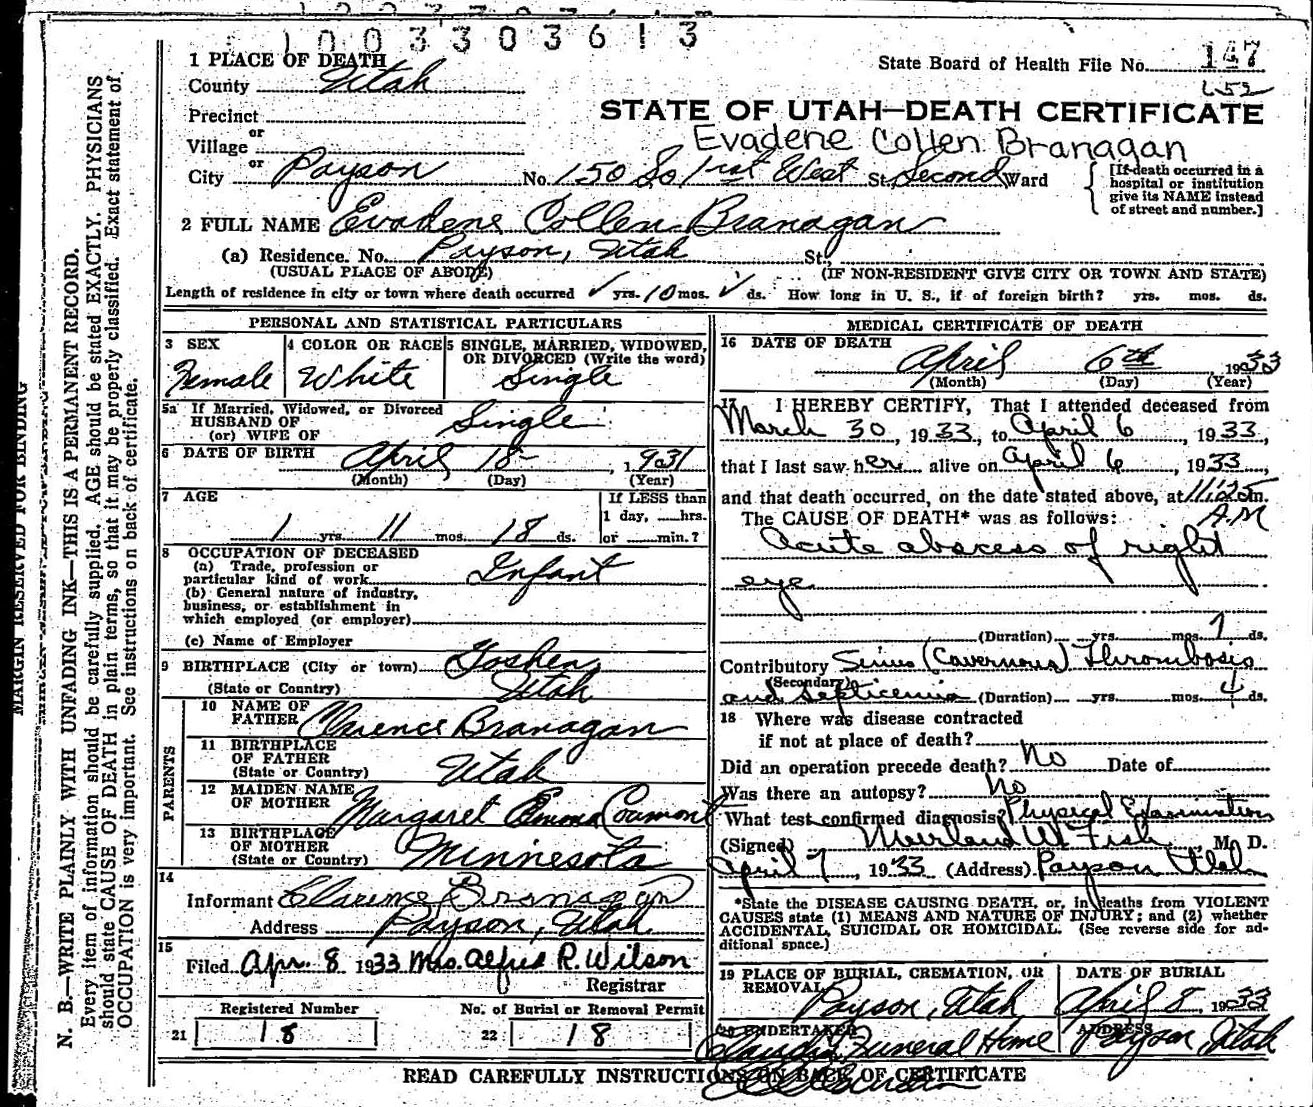 1003303613
1 PLACE OF DEATH
County Utah
State Board of Health File No. 147
Precinct
STATE OF UTAH—DEATH CERTIFICATE
or
Village
Evadene Collen Branagan
or
City Payson No. 150 So 1rst West St. Second Ward
[If death occurred in a hospital or institution give its NAME instead of street and number.]
2 FULL NAME Evadene Collen Branagan
(a) Residence. No. Payson, Utah St.,
(USUAL PLACE OF ABODE) (IF NON-RESIDENT GIVE CITY OR TOWN AND STATE)
Length of residence in city or town where death occurred ✓ yrs. 10 mos. ✓ ds. How long in U. S., if of foreign birth? yrs. mos. ds.
PERSONAL AND STATISTICAL PARTICULARS
3 SEX
Female
4 COLOR OR RACE
White
5 SINGLE, MARRIED, WIDOWED, OR DIVORCED (Write the word)
Single
5a If Married, Widowed, or Divorced
HUSBAND OF
(or) WIFE OF
Single
6 DATE OF BIRTH April 18, 1931
(Month) (Day) (Year)
7 AGE
1 yrs. 11 mos. 18 ds.
If LESS than
1 day, hrs.
or min.?
8 OCCUPATION OF DECEASED
(a) Trade, profession or
particular kind of work Infant
(b) General nature of industry,
business, or establishment in
which employed (or employer)
(c) Name of Employer
9 BIRTHPLACE (City or town) Goshen
(State or Country) Utah
PARENTS
10 NAME OF FATHER Clarence Branagan
11 BIRTHPLACE OF FATHER
(State or Country) Utah
12 MAIDEN NAME OF MOTHER Margaret
13 BIRTHPLACE OF MOTHER
(State or Country) Minnesota
14
Informant Clarence Branagan
Address Payson, Utah
15
Filed Apr. 8 1933 Mrs. Alfred R. Wilson
Registrar
Registered Number
21 18
No. of Burial or Removal Permit
22 18
MEDICAL CERTIFICATE OF DEATH
16 DATE OF DEATH
April 6th, 1933
(Month) (Day) (Year)
17 I HEREBY CERTIFY, That I attended deceased from
March 30, 1933, to April 6, 1933,
that I last saw her alive on April 6, 1933,
and that death occurred, on the date stated above, at 11:25 m.
The CAUSE OF DEATH* was as follows: A.M
Acute abscess of right
eye
(Duration) yrs. mos. 7 ds.
Contributory Sinus (Cavernous) Thrombosis
(Secondary)
and Septicemia (Duration) yrs. mos. 4 ds.
18 Where was disease contracted
if not at place of death?
Did an operation precede death? No Date of
Was there an autopsy? No
What test confirmed diagnosis? Physical Examination
(Signed) W. Fish, M. D.
April 7, 1933 (Address) Payson Utah
*State the DISEASE CAUSING DEATH, or, in deaths from VIOLENT
CAUSES state (1) MEANS AND NATURE OF INJURY; and (2) whether
ACCIDENTAL, SUICIDAL OR HOMICIDAL. (See reverse side for ad-
ditional space.)
19 PLACE OF BURIAL, CREMATION, OR REMOVAL
Payson, Utah
DATE OF BURIAL
April 8, 1933
20 UNDERTAKER
Funeral Home
ADDRESS
Payson, Utah
READ CAREFULLY INSTRUCTIONS ON BACK OF CERTIFICATE
MARGIN RESERVED FOR BINDING
N. B.—WRITE PLAINLY WITH UNFADING INK—THIS IS A PERMANENT RECORD.
Every item of information should be carefully supplied. AGE should be stated EXACTLY. PHYSICIANS
should state CAUSE OF DEATH in plain terms, so that it may be properly classified. Exact statement of
OCCUPATION is very important. See instructions on back of certificate.